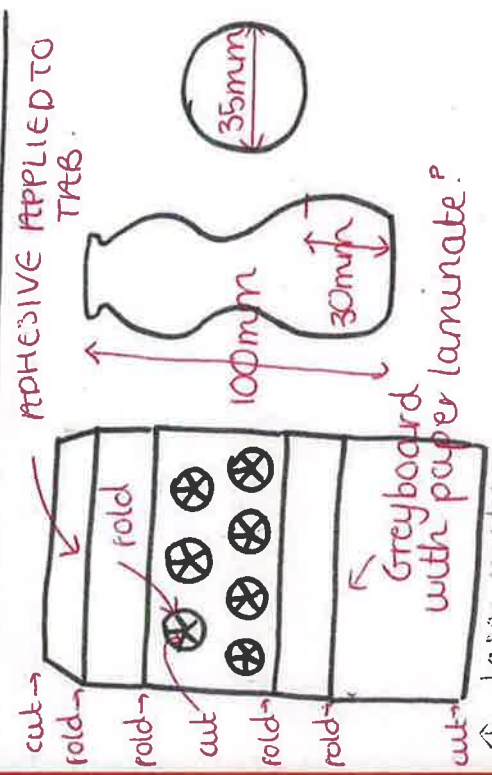 ADHESIVE APPLIED TO
TAB.
35mm
100mm
30mm
cut
fold
fold
cut
fold
fold
cut
fold
Greyboard
with paper laminate?